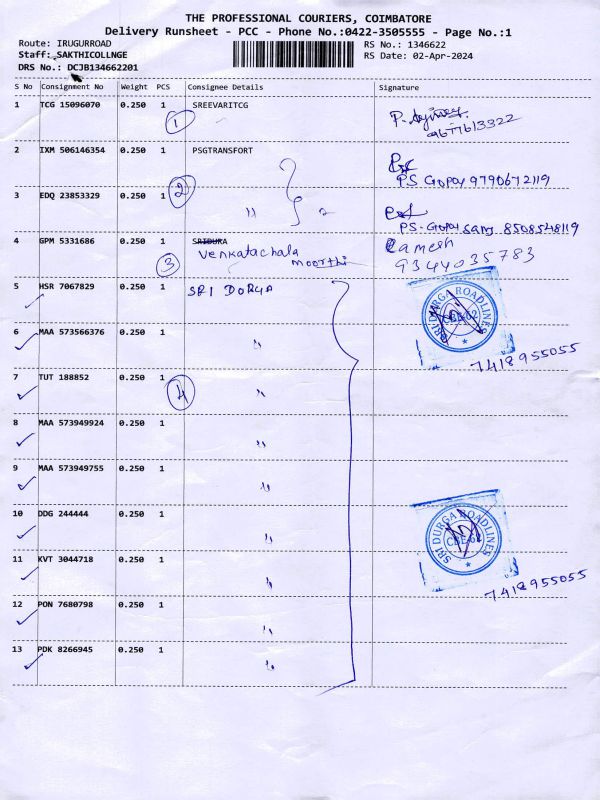 THE PROFESSIONAL COURIERS, COIMBATORE
Delivery Runsheet - PCC - Phone No.:0422-3505555 - Page No.:1
Route: IRUGURROAD
RS No.: 1346622
Staff: SAKTHICOLLNGE
RS Date: 02-Apr-2024
DRS No.: DCJB134662201
S No Consignment No Weight PCS Consignee Details Signature
1 TCG 15096070 0.250 1 SREEVARITCG
1 9677613322
2 IXM 506146354 0.250 1 PSGTRANSFORT
PS Gopal 9790672119
3 EDQ 23853329 0.250 1 "
2
PS. Gopal Samy 8508548119
4 GPM 5331686 0.250 1 SRIDURA Ramesh
3 Venkatachala moorthi 9344035783
5 HSR 7067829 0.250 1 SRI DORGA
SRI DURGA ROADLINES
CBE-62
6 MAA 573566376 0.250 1 "
7418955055
7 TUT 188852 0.250 1 "
4
8 MAA 573949924 0.250 1 "
9 MAA 573949755 0.250 1 "
10 DDG 244444 0.250 1 "
SRI DURGA ROADLINES
CBE-62
11 KVT 3044718 0.250 1 "
7418955055
12 PON 7680798 0.250 1 "
13 PDK 8266945 0.250 1 "